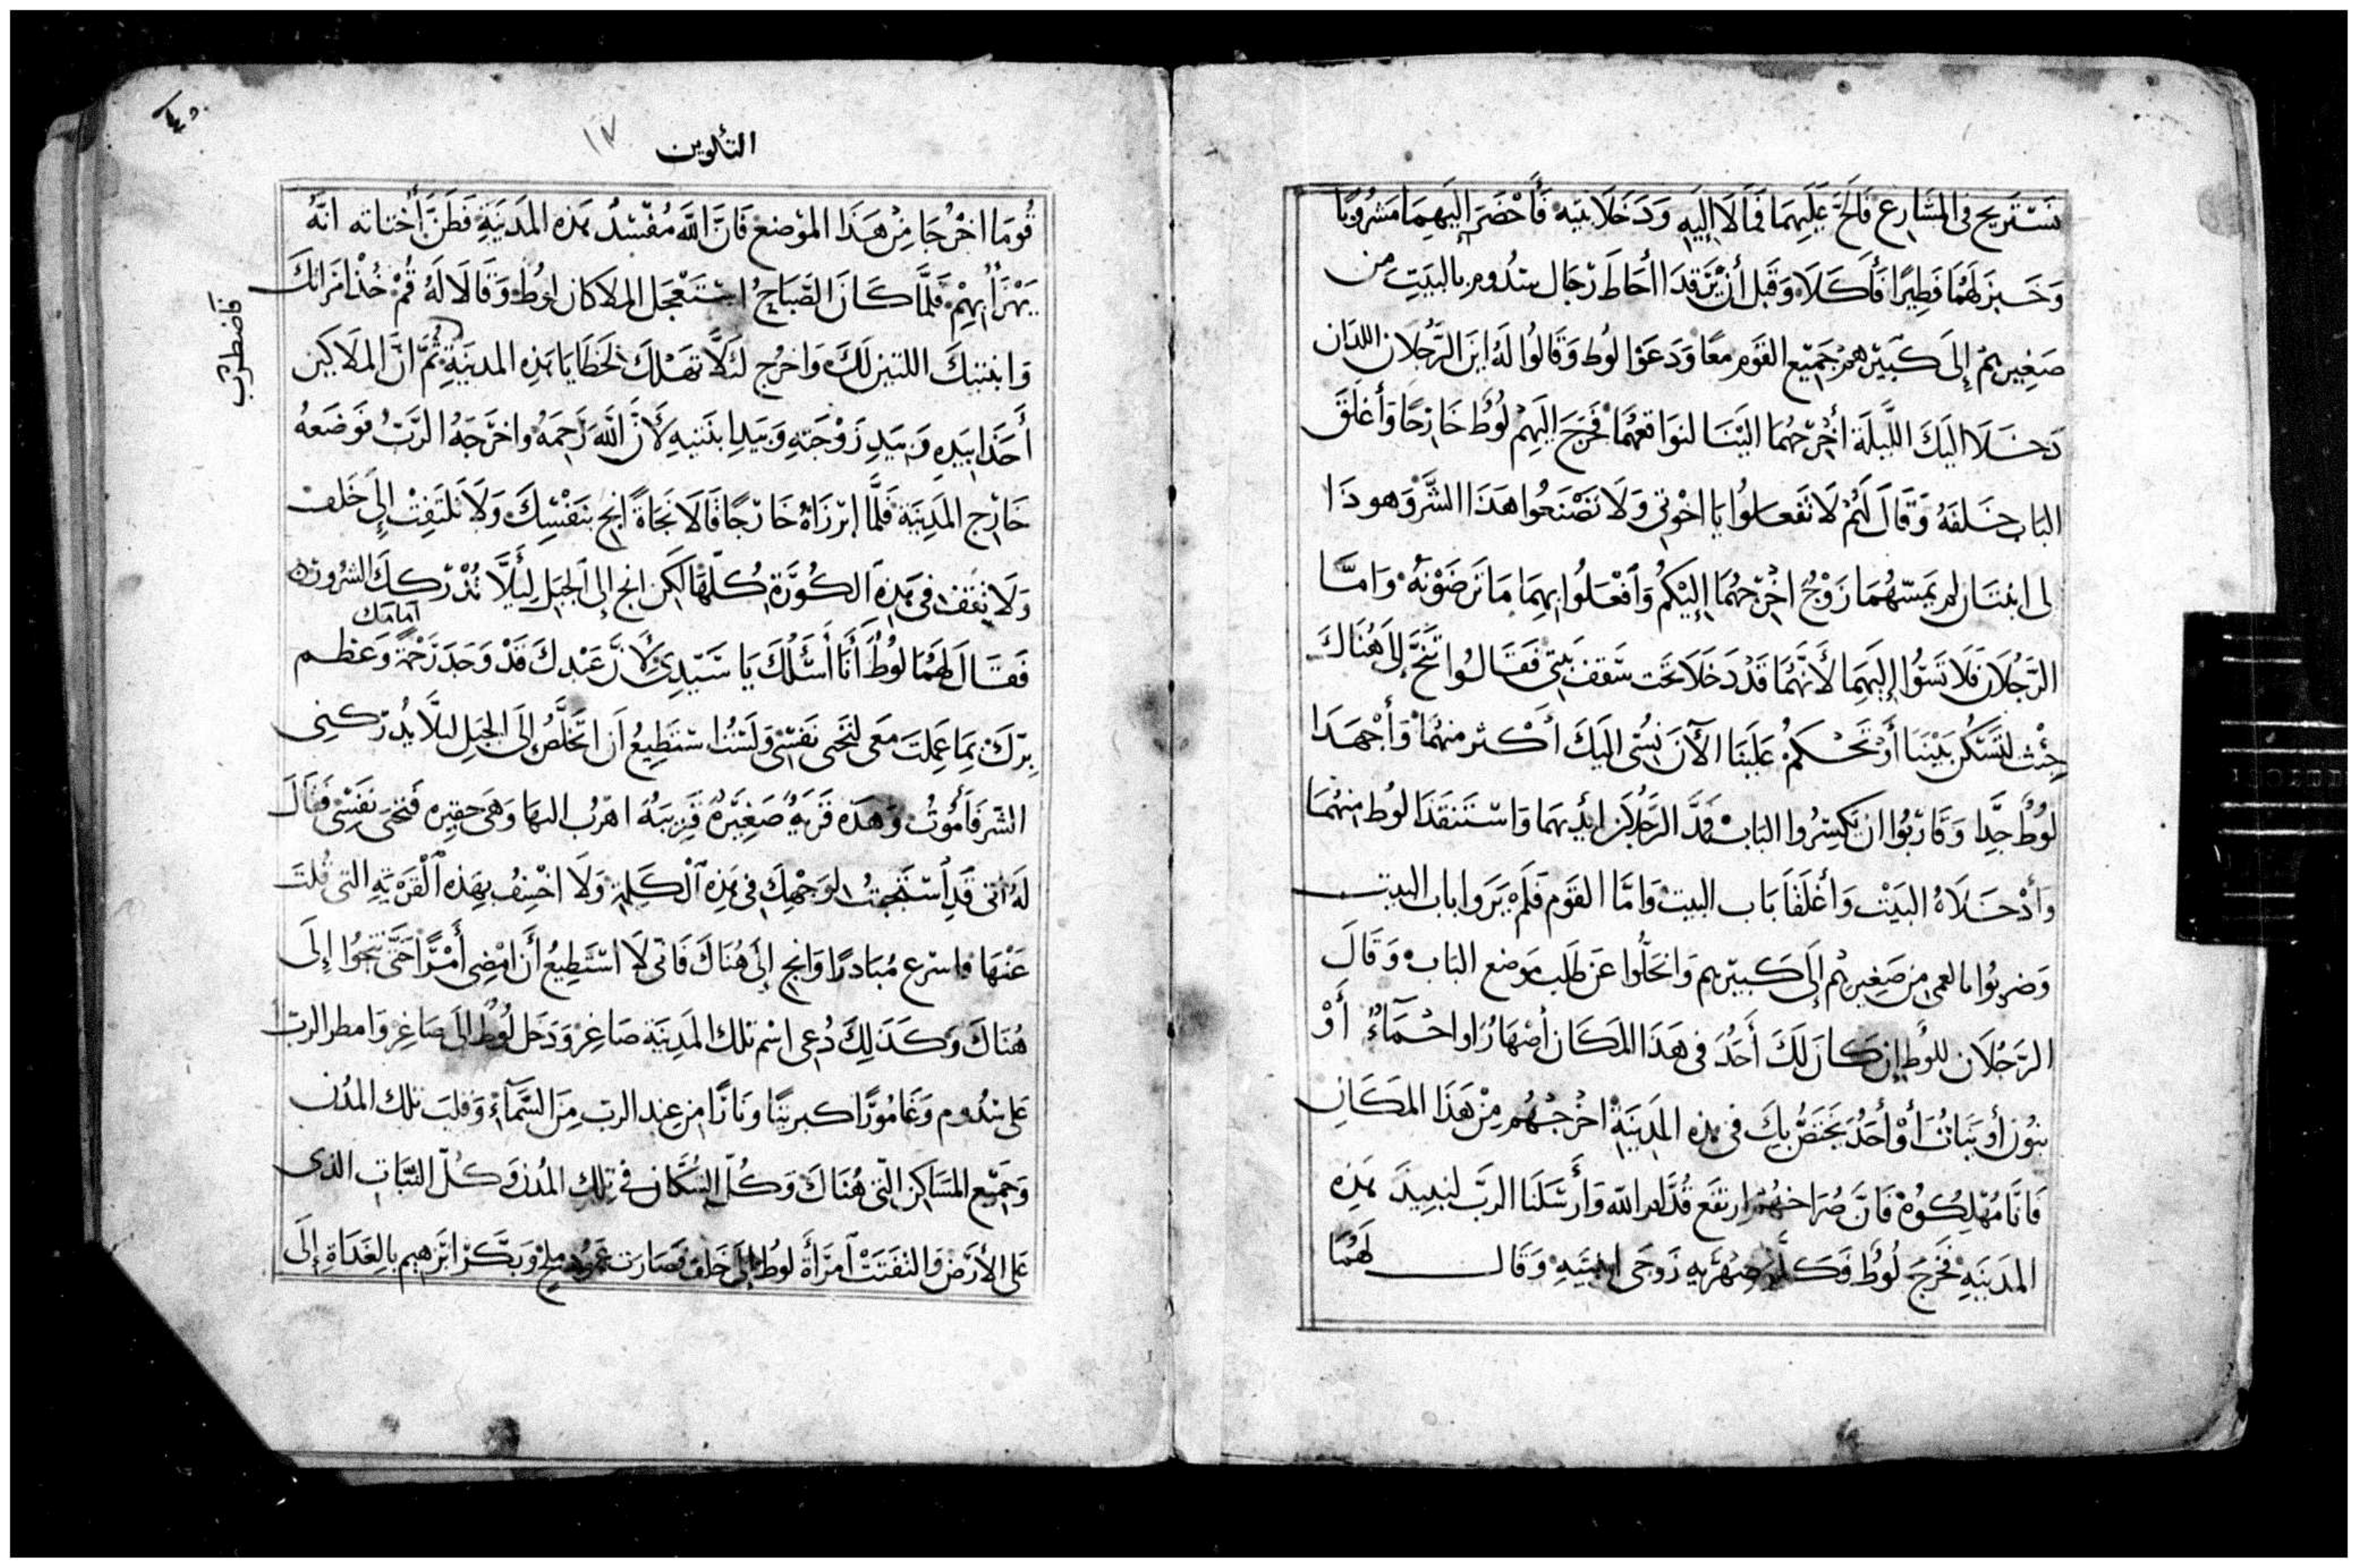 نَسْتَريح في المشَارِع فَالحَّ عَلَيهِمَا فمَالَا إِلَيهِ وَدَخَلَا بيته فَأَحْضَرَ إِلَيهِمَا مَشرُوبًا
وَخَبزَ لَهُمَا فَطِيرًا فَأَكَلَا وَقَبل أن يَرْقدَا أحَاطَ رجَال سدُوم بالبَيتِ من
صَغِيرهِمْ إِلَى كَبيرهِمْ جَمِيع القَوم معًا وَدَعَوْا لوط وَقَالُوا لَهُ اينَ الرَّجُلان اللذان
دَخَلَا اليكَ اللَّيلَة أخْرِجهُمَا اليْنَا لنوَاقعهُمَا فَخرجَ إِلَيهِمْ لُوطُ خَارجًا وَأغلَقَ
البَاب خَلفَهُ وَقَالَ لَهُمْ لَا تَفعَلُوا يَا اخْوتي وَلَا تَصْنَعُوا هَذَا الشَّرْ وَهوذَا
لى ابنتَان لم يَمَسّهُمَا زَوْجُ اخْرِجهُمَا إِلَيْكُمْ وَافْعَلُوا بِهِمَا مَا تَرضَوْنَهُ وَامَّا
الرَّجُلَان فَلَا تَسئُوا إِلَيهِمَا لأَنَّهُمَا قَدْ دَخَلَا تَحت سَقف بَيتي فَقَالُوا تَنَحَّ إِلَى هُنَاكَ
جِئْتَ لتَسْكُن بَيْنَنَا أَوْ تَحْكمُ عَلَينَا الآنَ نُسئ اليَكَ أكثر منهُمَا وَأَجْهَدَا
لوُطُ جِدًّا وَقَارَبُوا ان يَكسِرُوا البَابْ فمَدَّ الرَّجُلَان ايديهمَا وَاسْتَنقَذَا لوُط منهُمَا
وَأَدْخَلَاهُ البَيْت وَأغلَقَا بَاب البيت وَامَّا القَوم فَلَمْ يَرَوا باب البيت
وَضربُوا بالعمى من صَغِيرهُم إِلَى كَبيرهم وَانحَلُّوا عَن طَلب مَوضع البَابْ وَقَالَ
الرَّجُلَان للوُط إن كَانَ لَكَ أَحَدُ في هَذَا المَكَان أصْهَارُ او احْمَآءُ أَوْ
بنُون أو بَنَاتُ أَوْ أَحَدُ يَختَصُّ بِكَ في هذه المَدِينَةِ اخْرِجْهُم مِنْ هَذَا المَكَانِ
فَانَّا مُهْلِكُوهُ فَانَّ صُرَاخهُمْ ارتفَع قُدَّام الله وَأَرْسَلَنَا الربّ لنبيدَ هَذِه
المَدينَةِ فَخَرجَ لُوطُ وَكَلَّمَ صِهْرَيه زَوجَي ابنتَيهِ وَقَالَ لَهُمَا
التكوين
١٧
قُومَا اخْرُجَا مِنْ هَذَا الموْضع فَانَّ اللَّه مُفْسدُ هَذه المَدينَةِ فَظَنَّ أُختاته انَّهُ
يَهْزَأُ بِهِمْ فَلَمَّا كَانَ الصَّبَاحُ اسْتَعْجَل الملاكان لوُط وَقَالا لَهُ قُمْ خُذْ امرَاتكَ
وَابنتيكَ اللتين لَكَ وَاخرُج لئلاَّ تَهلكَ بخَطَايَا هَذِه المدينَةِ ثُمَّ انَّ الملَاكين
فأضطرب
أَخَذَا بيَدِهِ وَبيَدِ زَوْجَتهِ وَبيَدِ ابنَتيهِ لأَنَّ اللَّه رَحِمَهُ واخرَجهُ الرَّبُّ فوَضَعهُ
خَارِج المَدِينَة فَلَمَّا ابرَزَاهُ خَارجًا قَالَا نَجَاةً انج بنَفْسِكَ وَلَا تَلتَفِتْ إِلَى خَلف
وَلَا تقف في هَذِهِ الكُورَةِ كُلّهَا لَكِن انج إلى الجَبَل لِئَلَّا تُدْركك الشرُور
فَقَالَ لهُمَا لوُطُ أَنَا أسْئَلُكَ يَا سَيّدِي لأَنَّ عَبْدكَ قَدْ وَجَدَ رَحْمَةً أمامك وَعَظم
بِرّكْ بِمَا عَملتَ مَعي لتَحيى نَفسْي وَلَستُ اسْتَطِيعُ أَن اتخَلَّصُ إِلَى الجَبل لئلَّا يُدركني
الشر فَأَمُوتُ وَهَذه قَريةُ صَغِيرَةُ قَرِيبَةُ اهرُب اليهَا وَهي حقيره فَتحيَ نَفسْي فَقَالَ
لَهُ إني قَدِ استَحيتُ لوَجْهِكَ في هَذِه الكَلمةِ وَلَا اخْسِفُ بِهَذِه القَرْيَهِ التي قُلتَ
عَنْهَا فاسْرع مُبَادرًا وَانج إِلَى هُنَاكَ فَاني لَا اسْتَطِيعُ أَن امْضِي أَمْرًا حَتَّى تَنجُوا إِلَى
هُنَاكَ وَكَذَلِكَ دُعي اسْم تلك المَدِينَة صَاغِرْ وَدَخل لُوطُ إلى صَاغِرْ وَامطر الربّ
عَلى سدُوم وَغَامُورَّا كبريتًا وَنَارًا مِن عند الربّ مِنَ السَّمآءْ وَقلبَ تلك المدُن
وَجَمِيع المسَاكِن التي هُنَاكَ وَكُلّ السُّكَّان في تلك المُدُن وَكُلّ النبَات الذي
عَلى الأرَض وَالتفَتَتْ امرَأَة لوُط إِلَى خَلف فَصَارت عَمُود ملح وَبَكَّرَ ابرَاهيم بِالغدَاة إِلَى